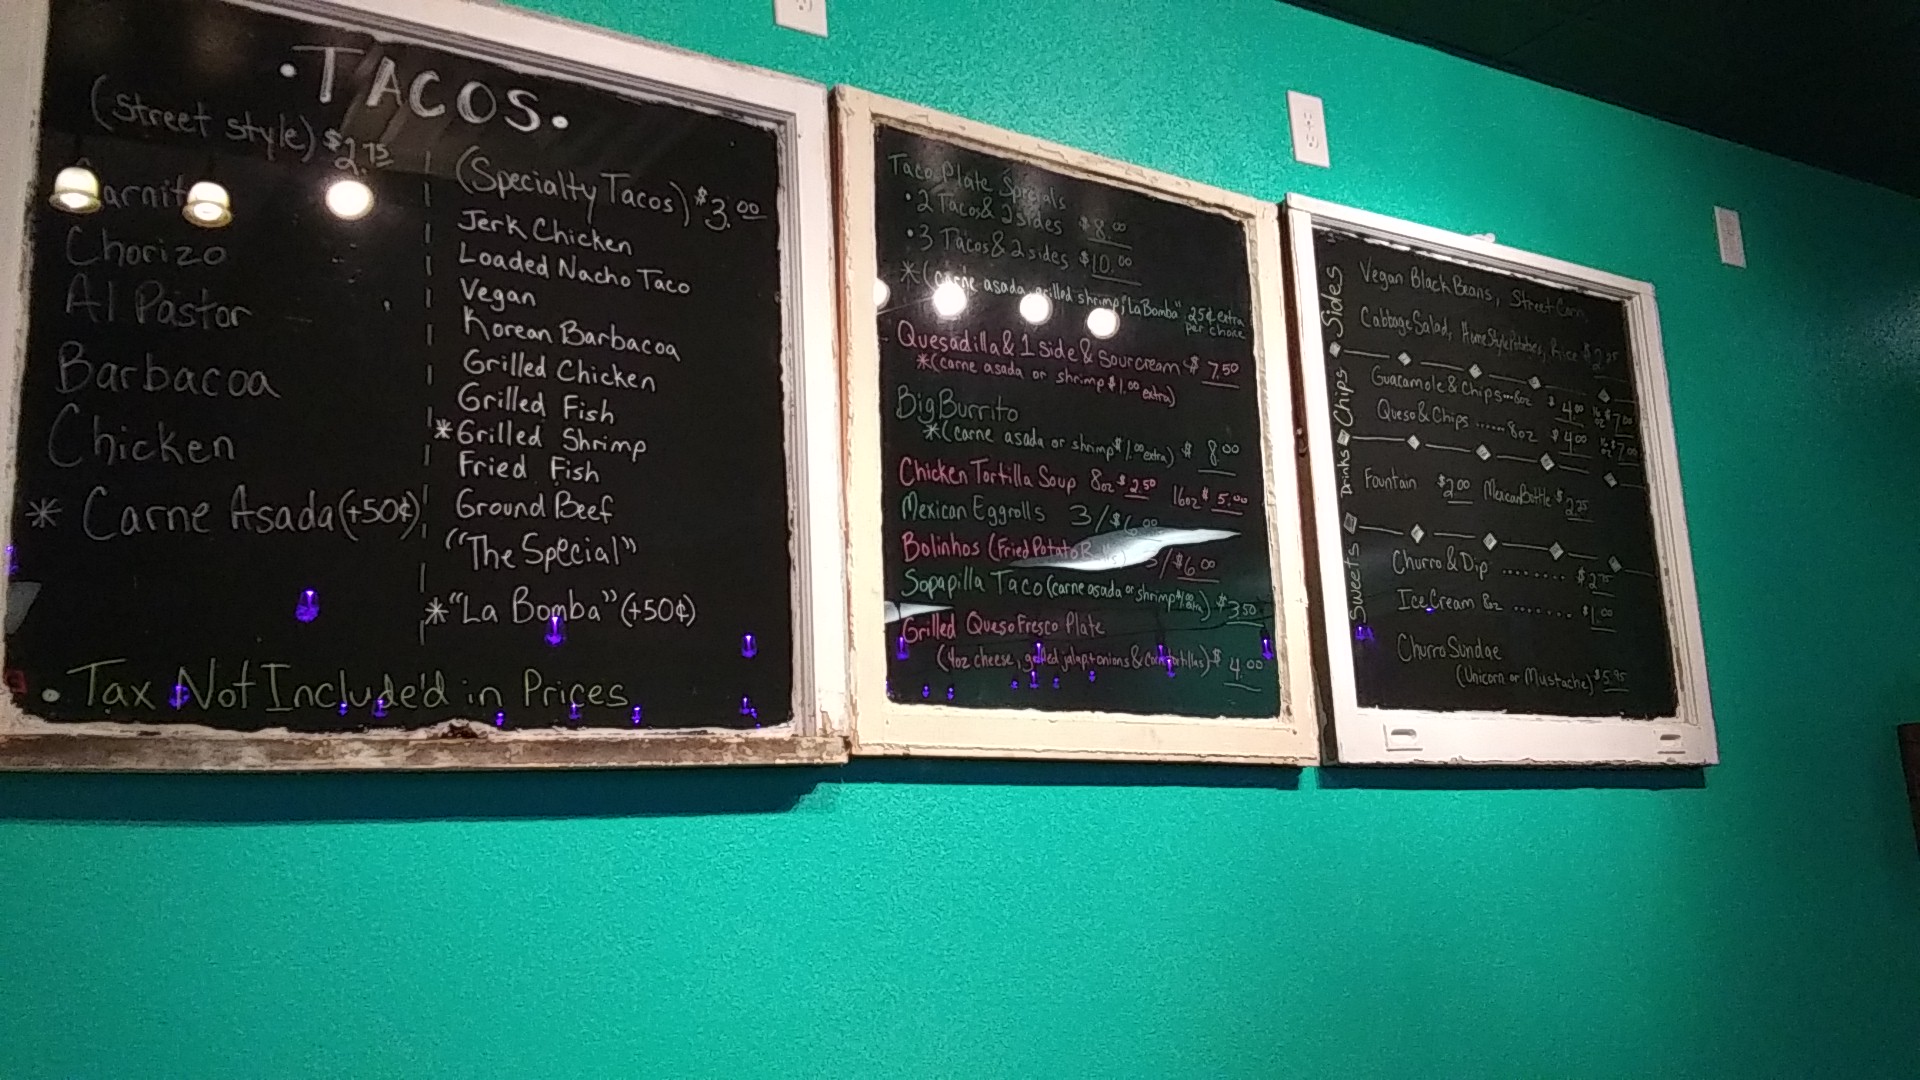 •TACOS•
(Street style) $2.75
Chorizo
Al Pastor
Barbacoa
Chicken
* Carne Asada (+50¢)
(Specialty Tacos) $3.00
Jerk Chicken
Loaded Nacho Taco
Vegan
Korean Barbacoa
Grilled Chicken
Grilled Fish
*Grilled Shrimp
Fried Fish
Ground Beef
"The Special"
*"La Bomba" (+50¢)
• Tax Not Include'd in Prices
Taco Plate Specials
• 2 Tacos & 2 sides $8.00
• 3 Tacos & 2 sides $10.00
*(carne asada, grilled shrimp, "La Bomba" 25¢ extra
per choice
Quesadilla & 1 side & sour cream $7.50
*(carne asada or shrimp $1.00 extra)
Big Burrito
*(carne asada or shrimp $1.00 extra) $8.00
Chicken Tortilla Soup 8oz $2.50 16oz $5.00
Mexican Eggrolls 3/$6.00
Bolinhos (Fried Potato 3/$6.00
Sopapilla Taco (carne asada or shrimp $1.00 extra) $3.50
Grilled Queso Fresco Plate
(4oz cheese, grilled jalap+onions & corn tortillas) $4.00
Sides
Vegan Black Beans, Street Corn,
Cabbage Salad, HomeStyle Potatoes, Rice $2.25
Chips
Guacamole & Chips...8oz $4.00 16oz $7.00
Queso & Chips ......8oz $4.00 16oz $7.00
Drinks
Fountain $2.00 Mexican Bottle $2.25
Sweets
Churro & Dip ........ $2.75
Ice Cream 8oz ........ $1.00
Churro Sundae
(Unicorn or Mustache) $5.95